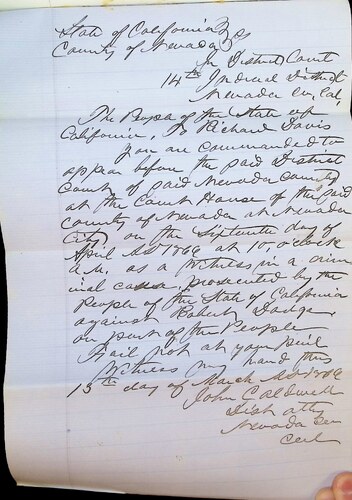 State of California } ss
County of Nevada }
In District Court
14th Judicial District
Nevada Co, Cal,
The People of the State of
California, To Richard Davis
You are commanded to
appear before the said District
Court of said Nevada County
at the Court House of the said
County of Nevada at Nevada
City on the Sixteenth day of
April AD 1866 at 10, o'clock
A.M. as a Witness in a crim
inal case prosecuted by the
People of the State of California
against Robert Dodge
on part of the People
Fail not at your peril
Witness my hand this
15th day of March AD 1866
John Caldwell
Dist atty
Nevada Co
Cal